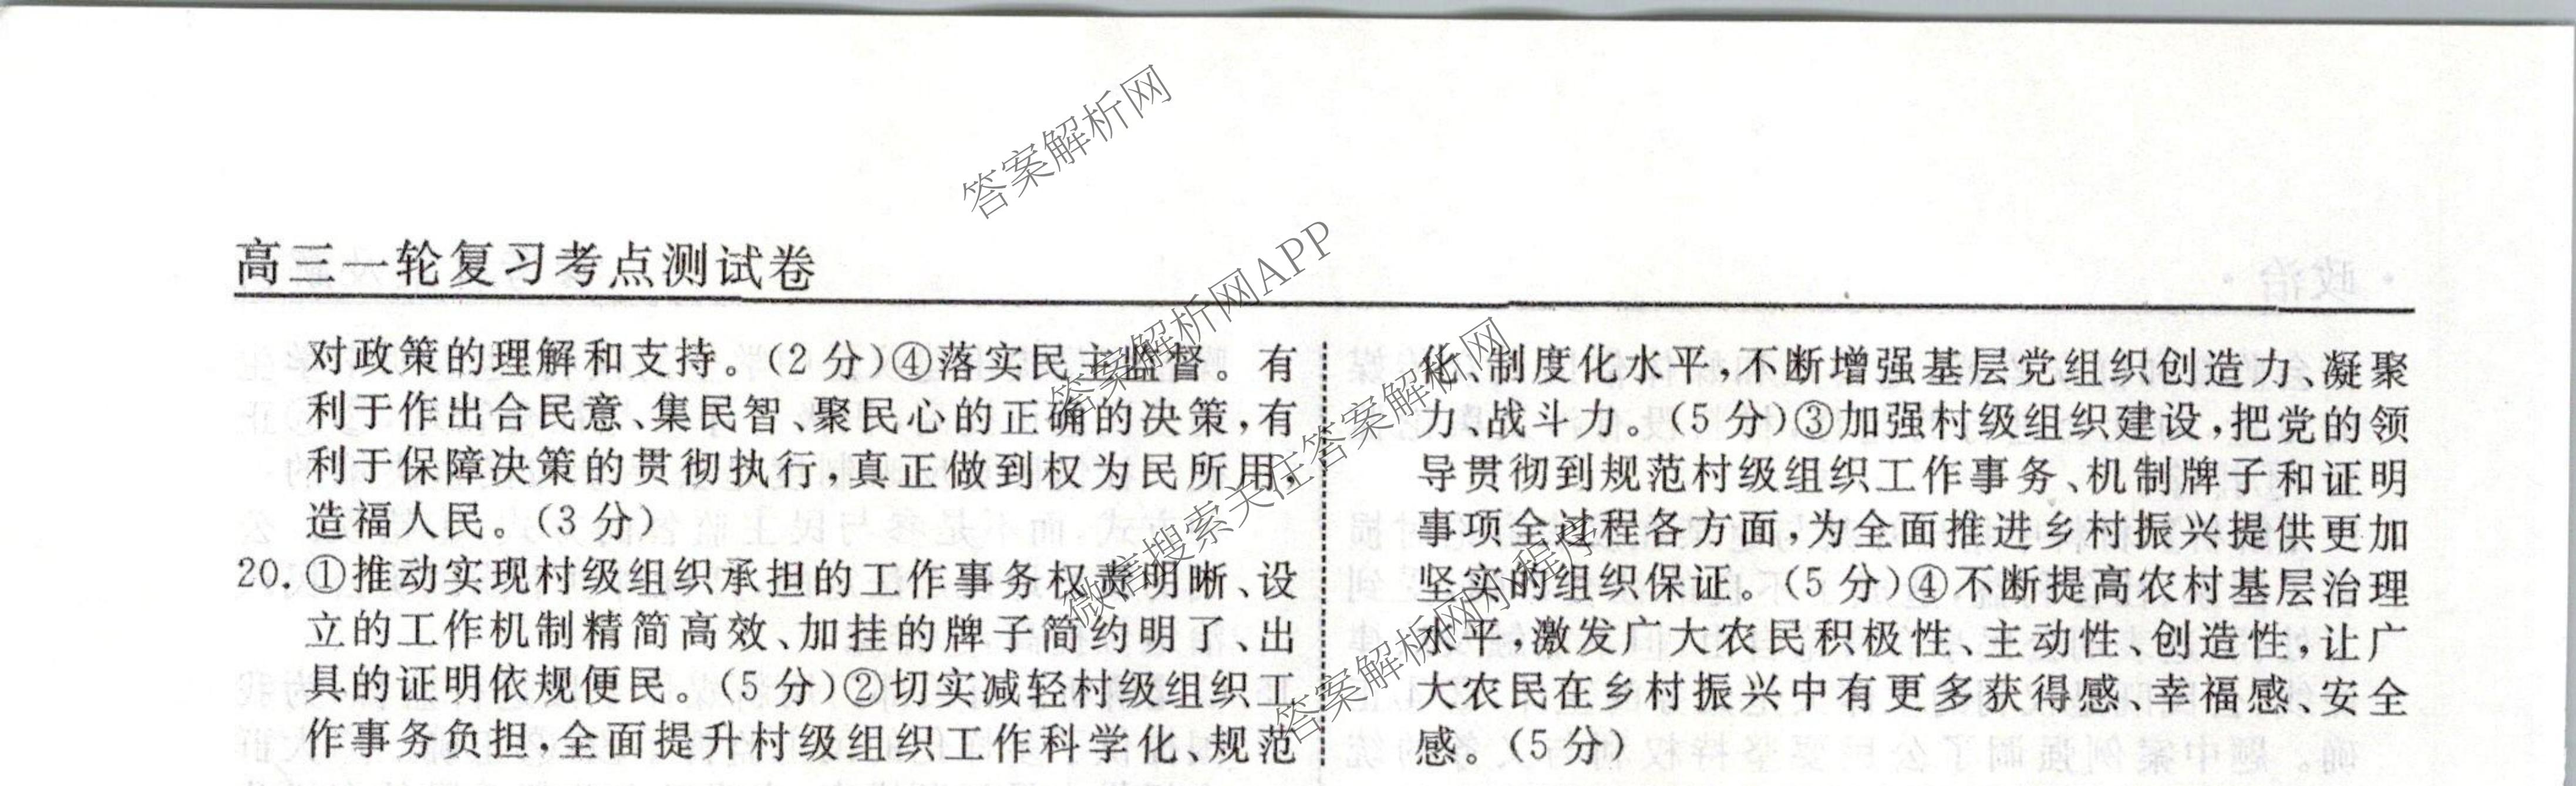 高三一轮复习考点测试卷
对政策的理解和支持。(2分)④落实民主监督。有
利于作出合民意、集民智、聚民心的正确的决策,有
利于保障决策的贯彻执行,真正做到权为民所用,
造福人民。(3分)
20.①推动实现村级组织承担的工作事务权责明晰、设
立的工作机制精简高效、加挂的牌子简约明了、出
具的证明依规便民。(5分)②切实减轻村级组织工
作事务负担,全面提升村级组织工作科学化、规范
化、制度化水平,不断增强基层党组织创造力、凝聚
力、战斗力。(5分)③加强村级组织建设,把党的领
导贯彻到规范村级组织工作事务、机制牌子和证明
事项全过程各方面,为全面推进乡村振兴提供更加
坚实的组织保证。(5分)④不断提高农村基层治理
水平,激发广大农民积极性、主动性、创造性,让广
大农民在乡村振兴中有更多获得感、幸福感、安全
感。(5分)
答案解析网
答案解析网APP
微信搜索关注答案解析网
答案解析网小程序
·政治·